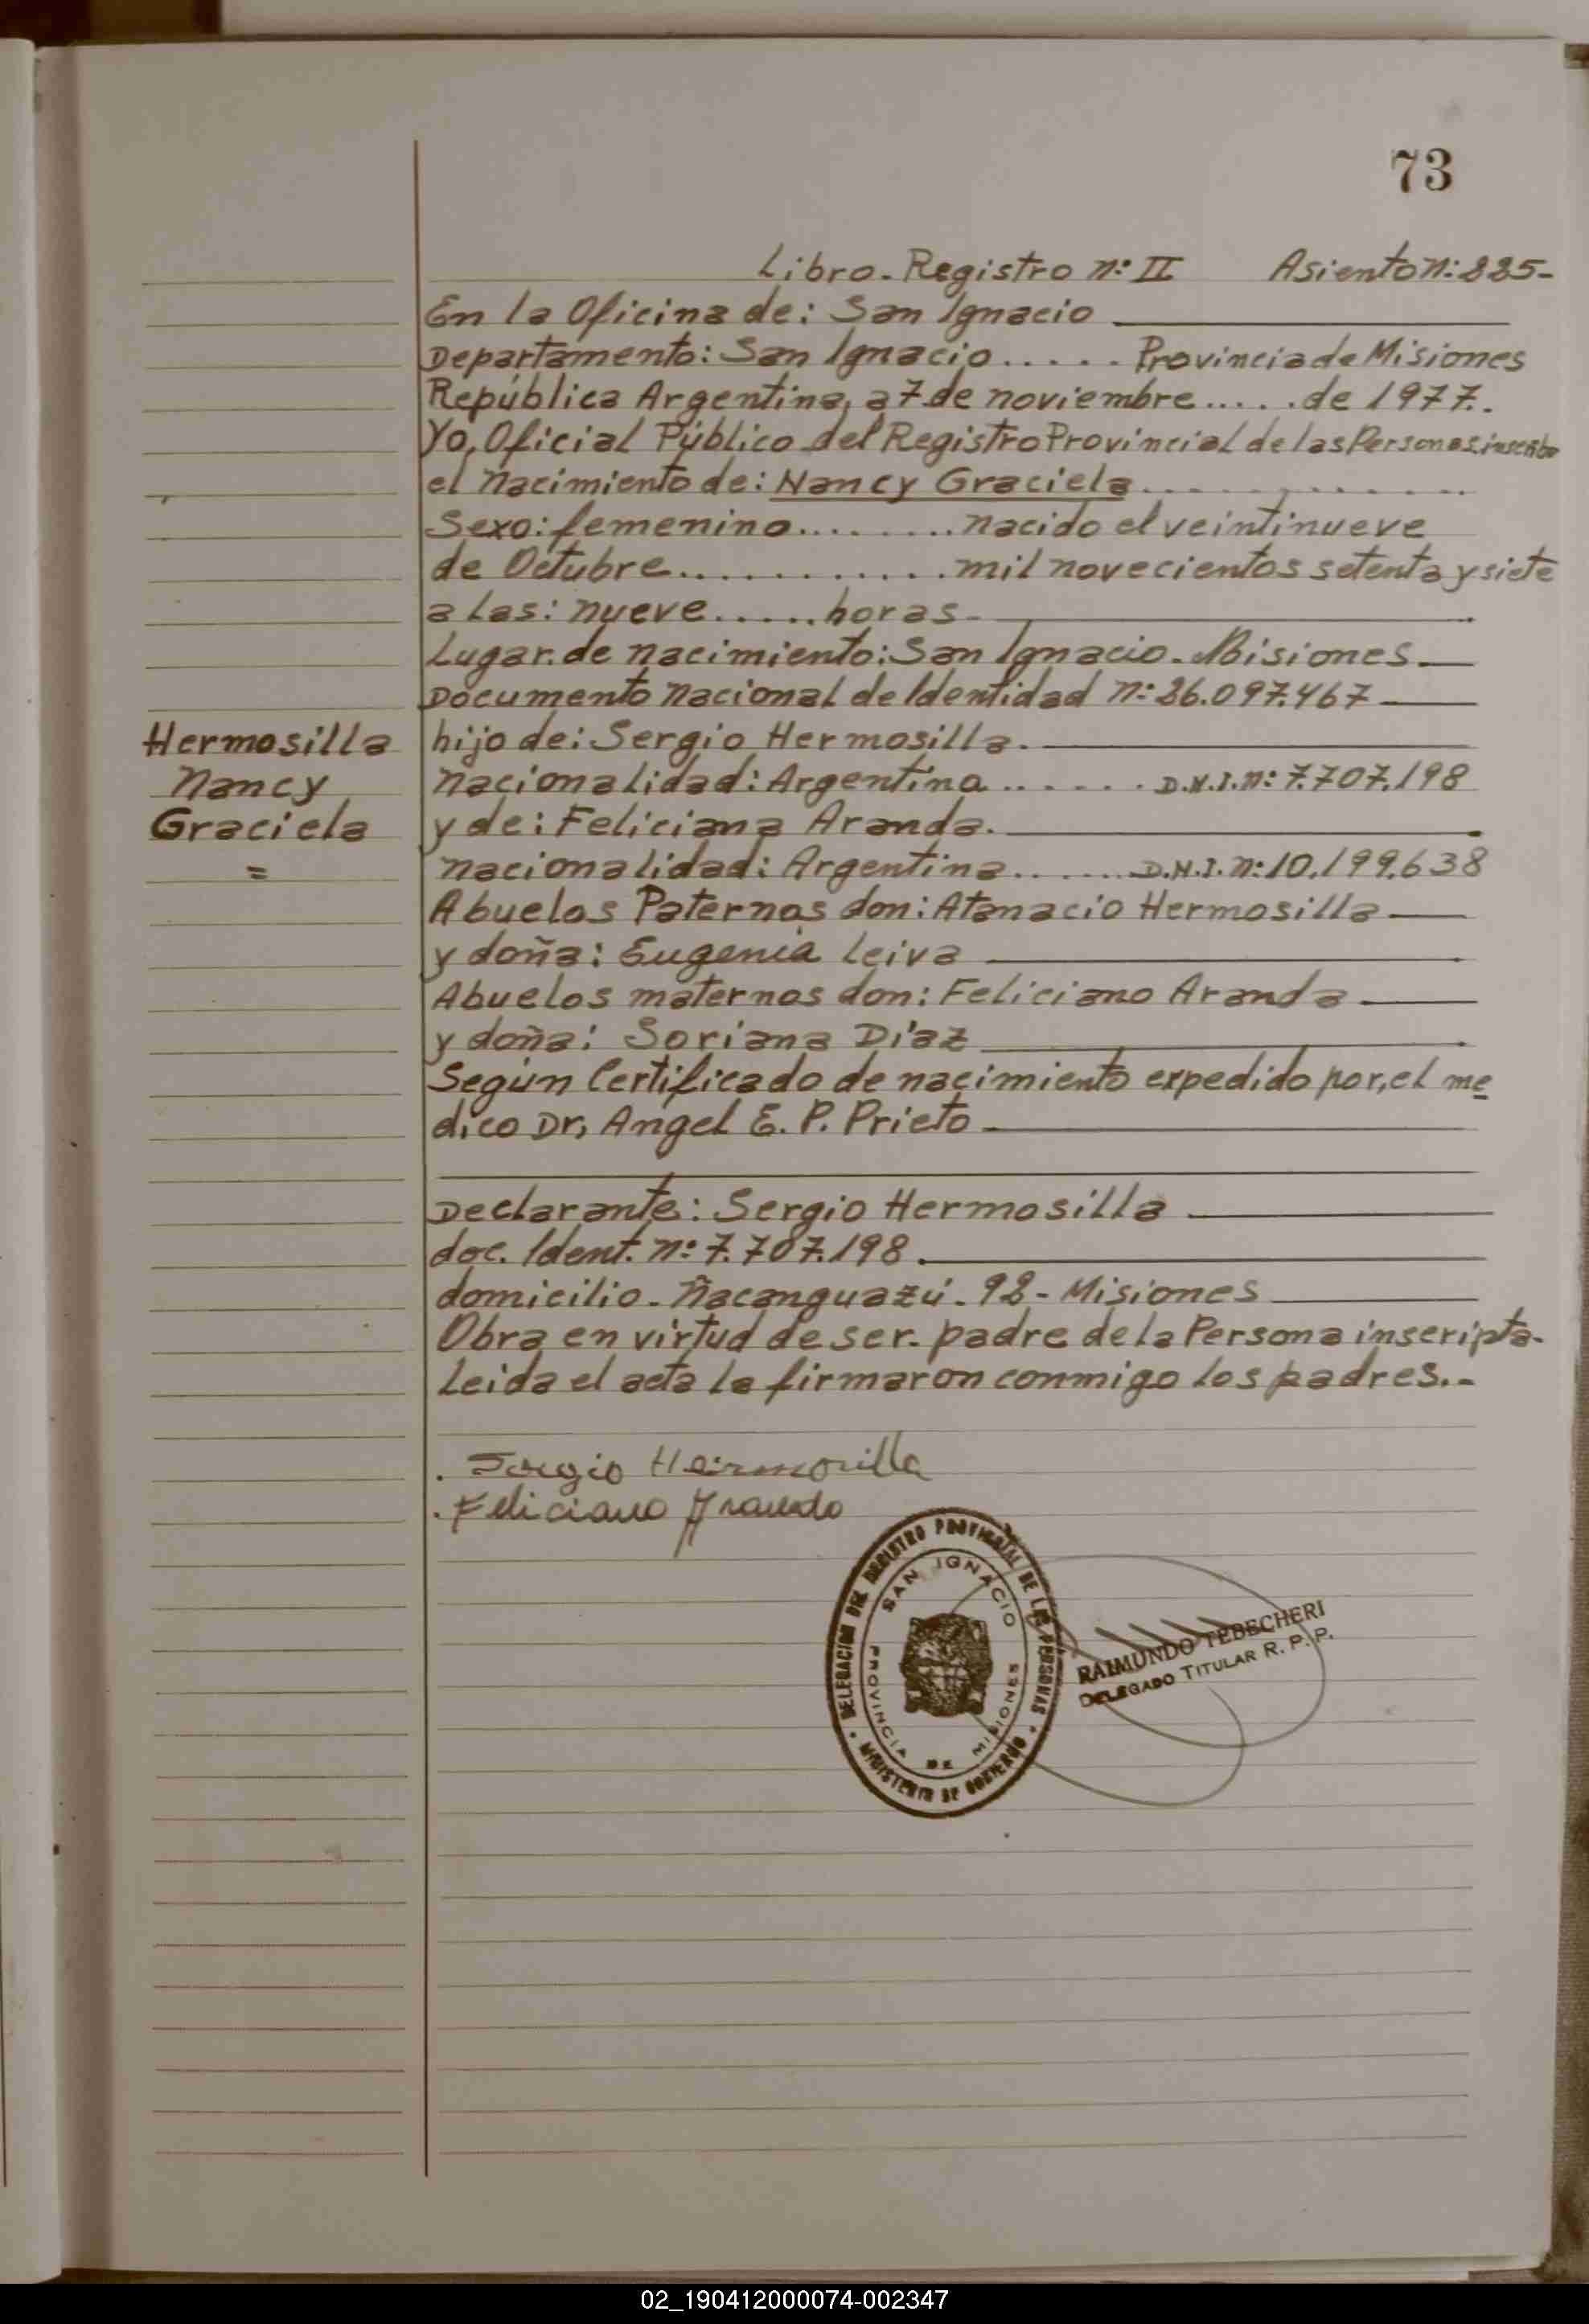 73
Libro-Registro n:º II Asiento n:225-
En la Oficina de: San Ignacio
Departamento: San Ignacio..... Provincia de Misiones
República Argentina, a 7 de noviembre..... de 1977.-
Yo, Oficial Público del Registro Provincial de las Personas, inscribo
el nacimiento de: Nancy Graciela
Sexo: femenino........nacido el veintinueve
de Octubre............mil novecientos setenta y siete
a las: nueve......horas-
Lugar de nacimiento: San Ignacio-Misiones-
Documento nacional de Identidad n:º 26.097.467
Hermosilla hijo de: Sergio Hermosilla.
Nancy nacionalidad: Argentina...... D.N.I.n:º 7.707.198
Graciela y de: Feliciana Aranda.
= nacionalidad: Argentina......D.N.I.n:º 10.199.638
Abuelos Paternos don: Atanacio Hermosilla
y doña: Eugenia Leiva
Abuelos maternos don: Feliciano Aranda
y doña: Soriana Díaz
Según Certificado de nacimiento expedido por, el me
dico Dr, Angel E. P. Prieto-
Declarante: Sergio Hermosilla
doc. Ident. n:º 7.707.198.
domicilio-Ñacanguazú-92-Misiones
Obra en virtud de ser-padre de la Persona inscripta-
Leida el acta la firmaron conmigo los padres.-
. Sergio Hermosilla
. Feliciana Aranda
DELEGACION DEL REGISTRO PROVINCIAL DE LAS PERSONAS
SAN IGNACIO
PROVINCIA DE MISIONES
MINISTERIO DE GOBIERNO
RAIMUNDO TEBECHERI
DELEGADO TITULAR R. P. P.
02_190412000074-002347